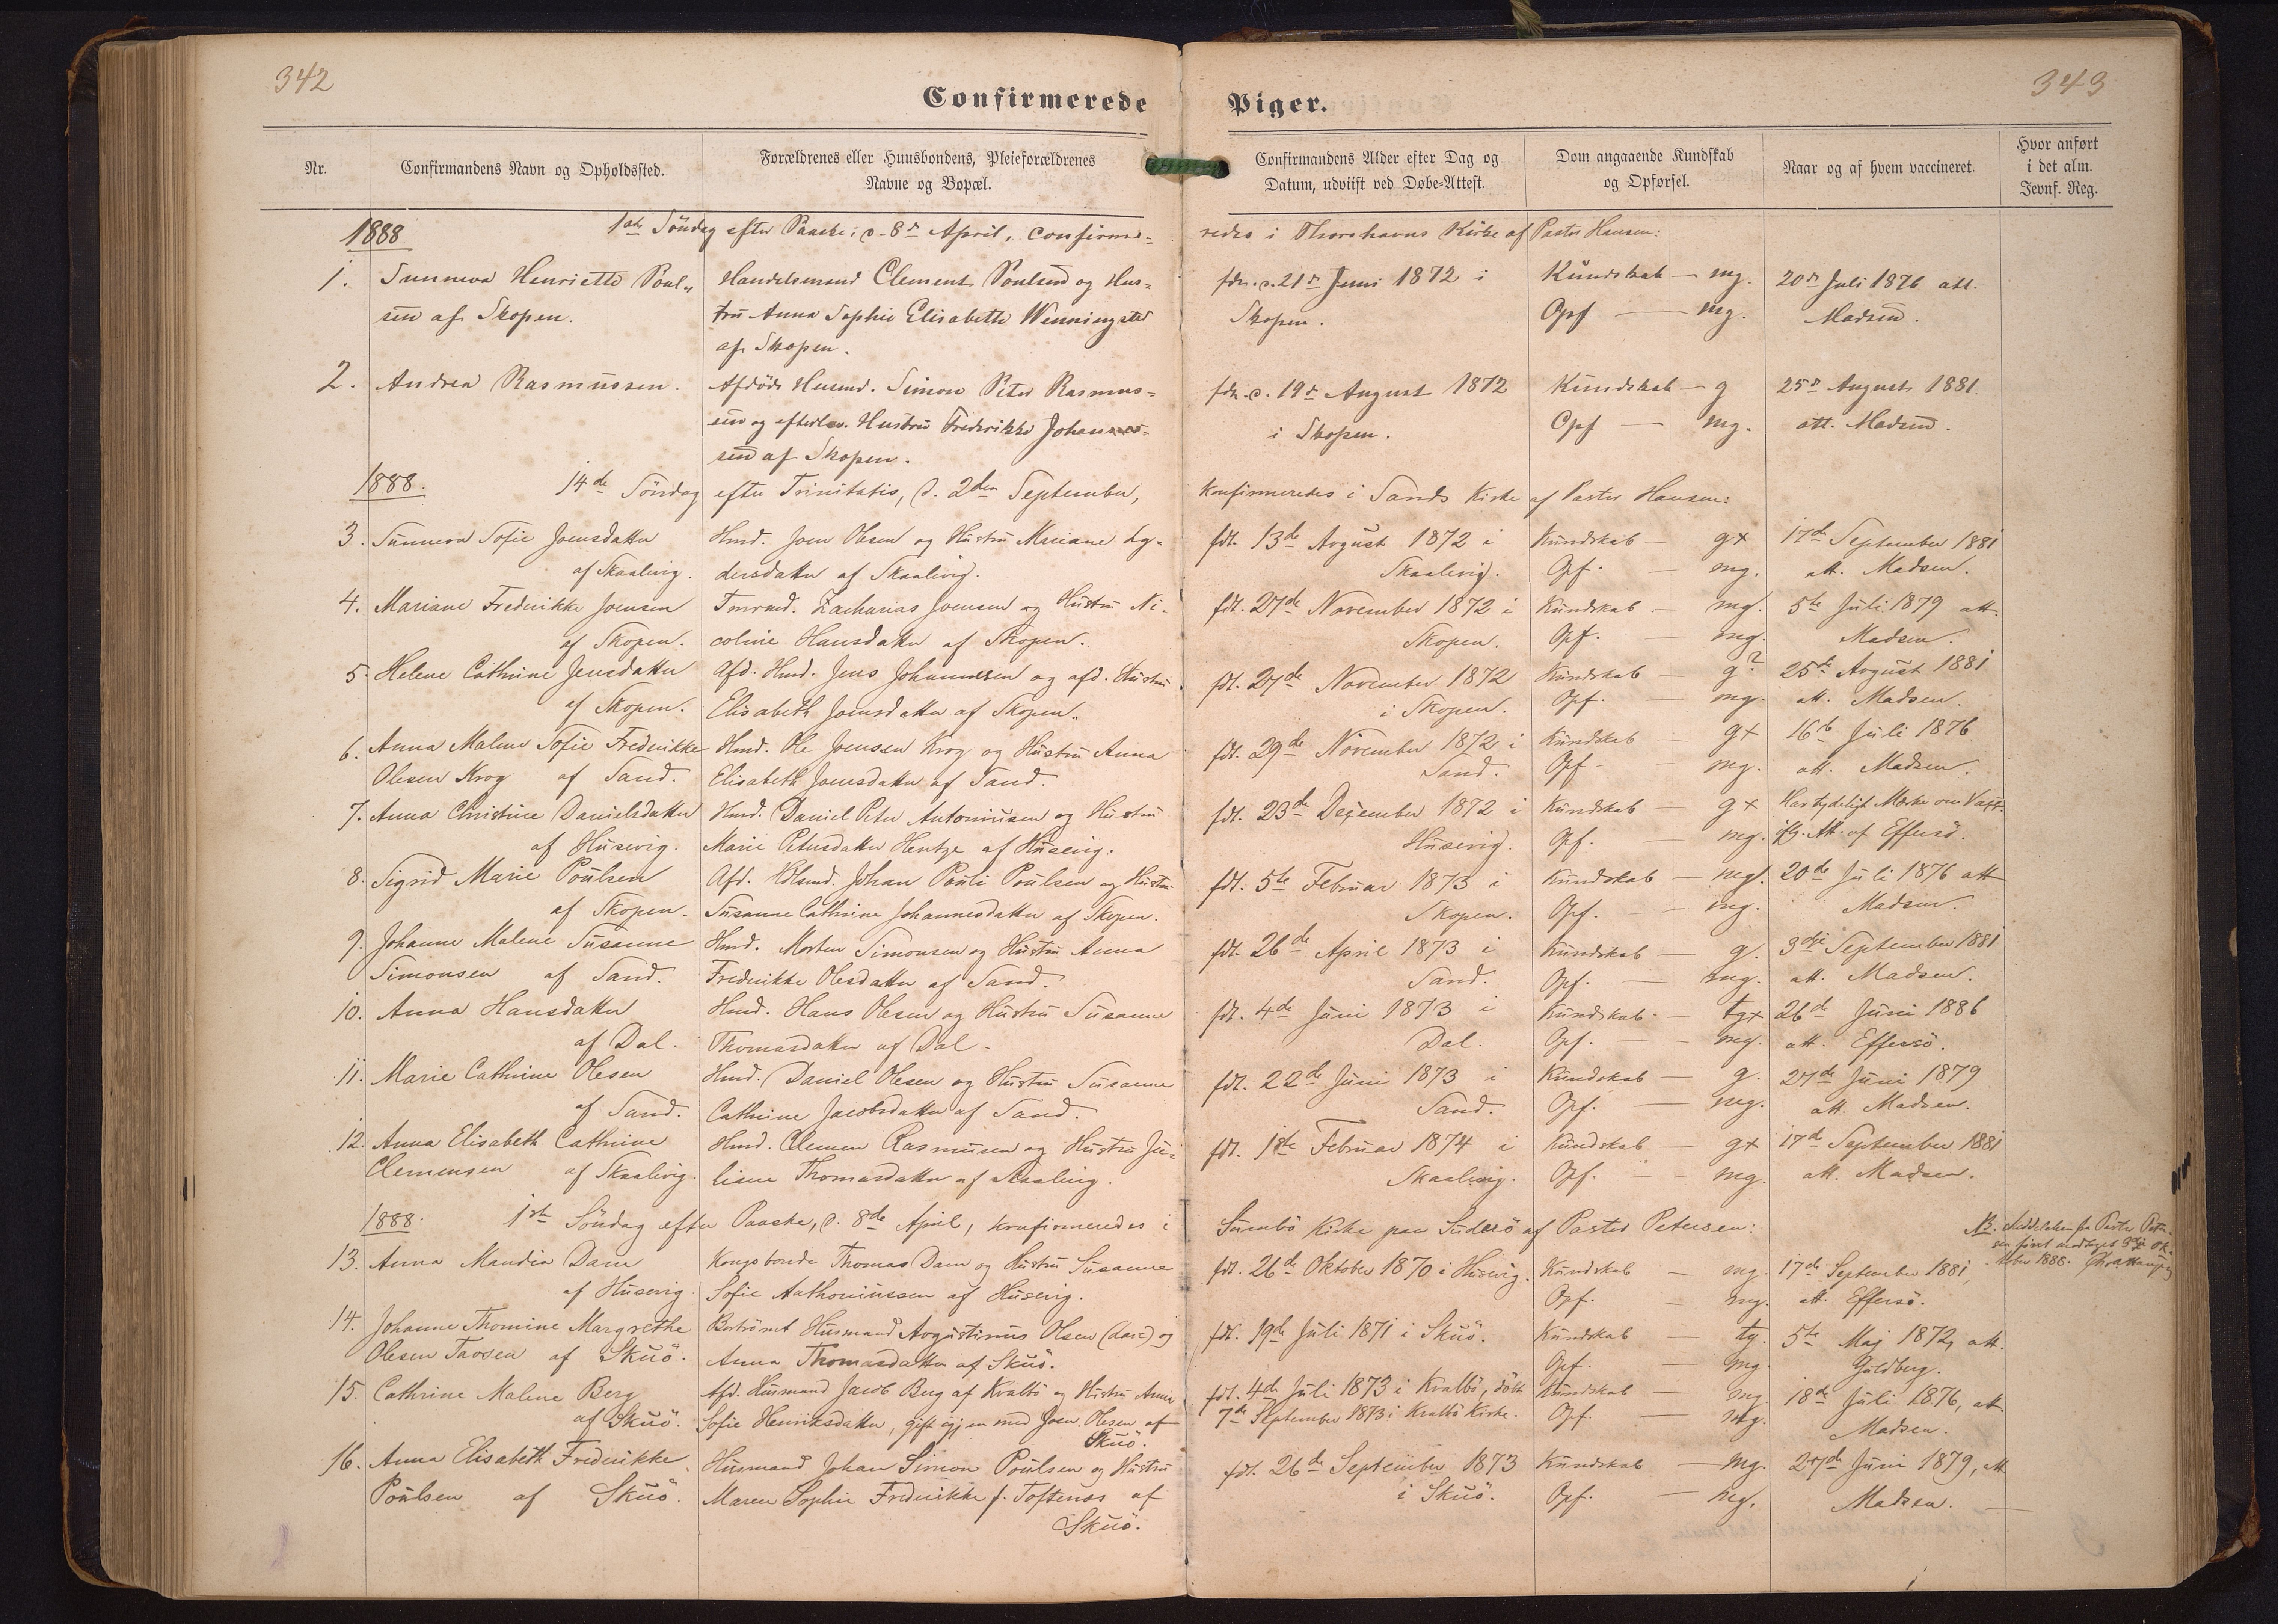 342
Confirmerede
Nr.
Confirmandens Navn og Opholdssted.
Forældrenes eller Huusbondens, Pleieforældrenes
Navne og Bopæl.
1888
1ste Söndag efter Paaske; d. 8de April, confirme-
1. Sunneva Henriette Poul-
sen af Skopen.
Handelsmand Clement Poulsen og Hus-
tru Anna Sophie Elisabeth Wenningsted
af Skopen.
2. Andrea Rasmussen.
Afdöde Husmd. Simon Peter Rasmus-
sen og efterlev. Hustru Frederikke Johannes-
sen af Skopen.
1888. 14de Söndag efter Trinitatis, d. 2den September,
3. Sunneva Sofie Joensdatter
af Skaalevig.
Hmd. Joen Olesen og Hustru Mariane Ly-
dersdatter af Skaalevig.
4. Mariane Frederikke Joensen
af Skopen.
Tmrmd. Zacharias Joensen og Hustru Ni-
coline Hansdatter af Skopen.
5. Helene Cathrine Jensdatter
af Skopen.
Afd. Hmd. Jens Johannesen og afd. Hustru
Elisabeth Joensdatter af Skopen.
6. Anna Malene Sofie Frederikke
Olesen Krog af Sand.
Hmd. Ole Joensen Krog og Hustru Anna
Elisabeth Joensdatter af Sand.
7. Anna Christine Danielsdatter
af Husevig.
Hmd. Daniel Peter Antoniusen og Hustru
Marie Petersdatter Hentze af Husevig.
8. Sigrid Marie Poulsen
af Skopen.
Afd. Hdlsmd. Johan Pauli Poulsen og Hustru
Susanne Cathrine Johannesdatter af Skopen.
9. Johanne Malene Susanne
Simonsen af Sand.
Hmd. Morten Simonsen og Hustru Anna
Frederikke Olesdatter af Sand.
10. Anna Hansdatter
af Dal.
Hmd. Hans Olesen og Hustru Susanne
Thomasdatter af Dal.
11. Marie Cathrine Olesen
af Sand.
Hmd. Daniel Olesen og Hustru Susanne
Cathrine Jacobsdatter af Sand.
12. Anna Elisabeth Cathrine
Clemensen af Skaalevig.
Hmd. Clemen Rasmusen og Hustru Ju-
liane Thomasdatter af Skaalevig.
1888. 1ste Söndag efter Paaske, d. 8de April, konfirmeredes i
13. Anna Maudia Dam
af Husevig.
Kongsbonde Thomas Dam og Hustru Susanne
Sofie Anthoniussen af Husevig.
14. Johanne Thomine Margrethe
Olesen Traosen af Skuö.
Husmand Avgustinus Olsen og
Anna Thomasdatter af Skuö.
15. Cathrine Malene Berg
af Skuö.
Afd. Husmand Jacob Berg af Kvalbö og Hustru Anne
Sofie Henriksdatter, gift igjen med Joen Olesen af
Skuö.
16. Anna Elisabeth Frederikke
Poulsen af Skuö.
Husmand Johan Simon Poulsen og Hustru
Maren Sophie Frederikke f. Toftenæs af
Skuö.
343
Piger.
Confirmandens Alder efter Dag og
Datum, udviist ved Døbe-Attest.
Dom angaaende Kundskab
og Opførsel.
Naar og af hvem vaccineret.
Hvor anført
i det alm.
Jevnf. Reg.
redes i Thorshavns Kirke af Pastor Hansen:
fdn. d. 21de Juni 1872 i
Skopen.
Kundskab — mg.
Opf — mg.
20de Juli 1876 att.
Madsen.
fdn. d. 19de August 1872
i Skopen.
Kundskab — g
Opf — mg.
25de August 1881.
att. Madsen.
konfirmeredes i Sands Kirke af Pastor Hansen:
fdt. 13de Avgust 1872 i
Skaalevig.
Kundskab — g+
Opf. — mg.
17de September 1881
att. Madsen.
fdt. 27de November 1872 i
Skopen.
Kundskab — mg.
Opf. — mg.
5te Juli 1879 att.
Madsen.
fdt. 27de November 1872
i Skopen.
Kundskab — g?
Opf. — mg.
25de Avgust 1881
att. Madsen.
fdt. 29de November 1872 i
Sand.
Kundskab — g+
Opf. — mg.
16de Juli 1876
att. Madsen.
fdt. 23de December 1872 i
Husevig.
Kundskab — g+
Opf. — mg.
Har tydeligt Mærke om Vacc.
ifg. Att. af Effersö.
fdt. 5te Februar 1873 i
Skopen.
Kundskab — mg.
Opf. — mg.
20de Juli 1876 att
Madsen.
fdt. 26de April 1873 i
Sand.
Kundskab — g.
Opf. — mg.
3dje September 1881
att. Madsen.
fdt. 4de Juni 1873 i
Dal.
Kundskab — tg+
Opf. — mg.
26de Juni 1886
att. Effersö.
fdt. 22de Juni 1873 i
Sand.
Kundskab — g.
Opf. — mg.
27de Juni 1879
att. Madsen.
fdt. 1ste Februar 1874 i
Skaalevig.
Kundskab — g+
Opf. — mg.
17de September 1881
att. Madsen.
Sumbö Kirke paa Suderö af Pastor Petersen:
NB. Meddelelsen fra Pastor Peter-
sen først modtaget 3dje Ok-
tober 1888.
fdt. 26de Oktober 1870 i Husevig.
Kundskab — mg.
Opf. — mg.
17de September 1881,
att. Effersö.
fdt. 19de Juli 1871 i Skuö.
Kundskab — tg.
Opf. — mg.
5te Maj 1872, att.
Guldberg.
fdt. 4de Juli 1873 i Kvalbö, döbt
7de September 1873 i Kvalbö Kirke.
Kundskab — mg.
Opf. — mg.
18de Juli 1876, att.
Madsen.
fdt. 26de September 1873
i Skuö.
Kundskab — mg.
Opf. — mg.
27de Juni 1879, att
Madsen. —